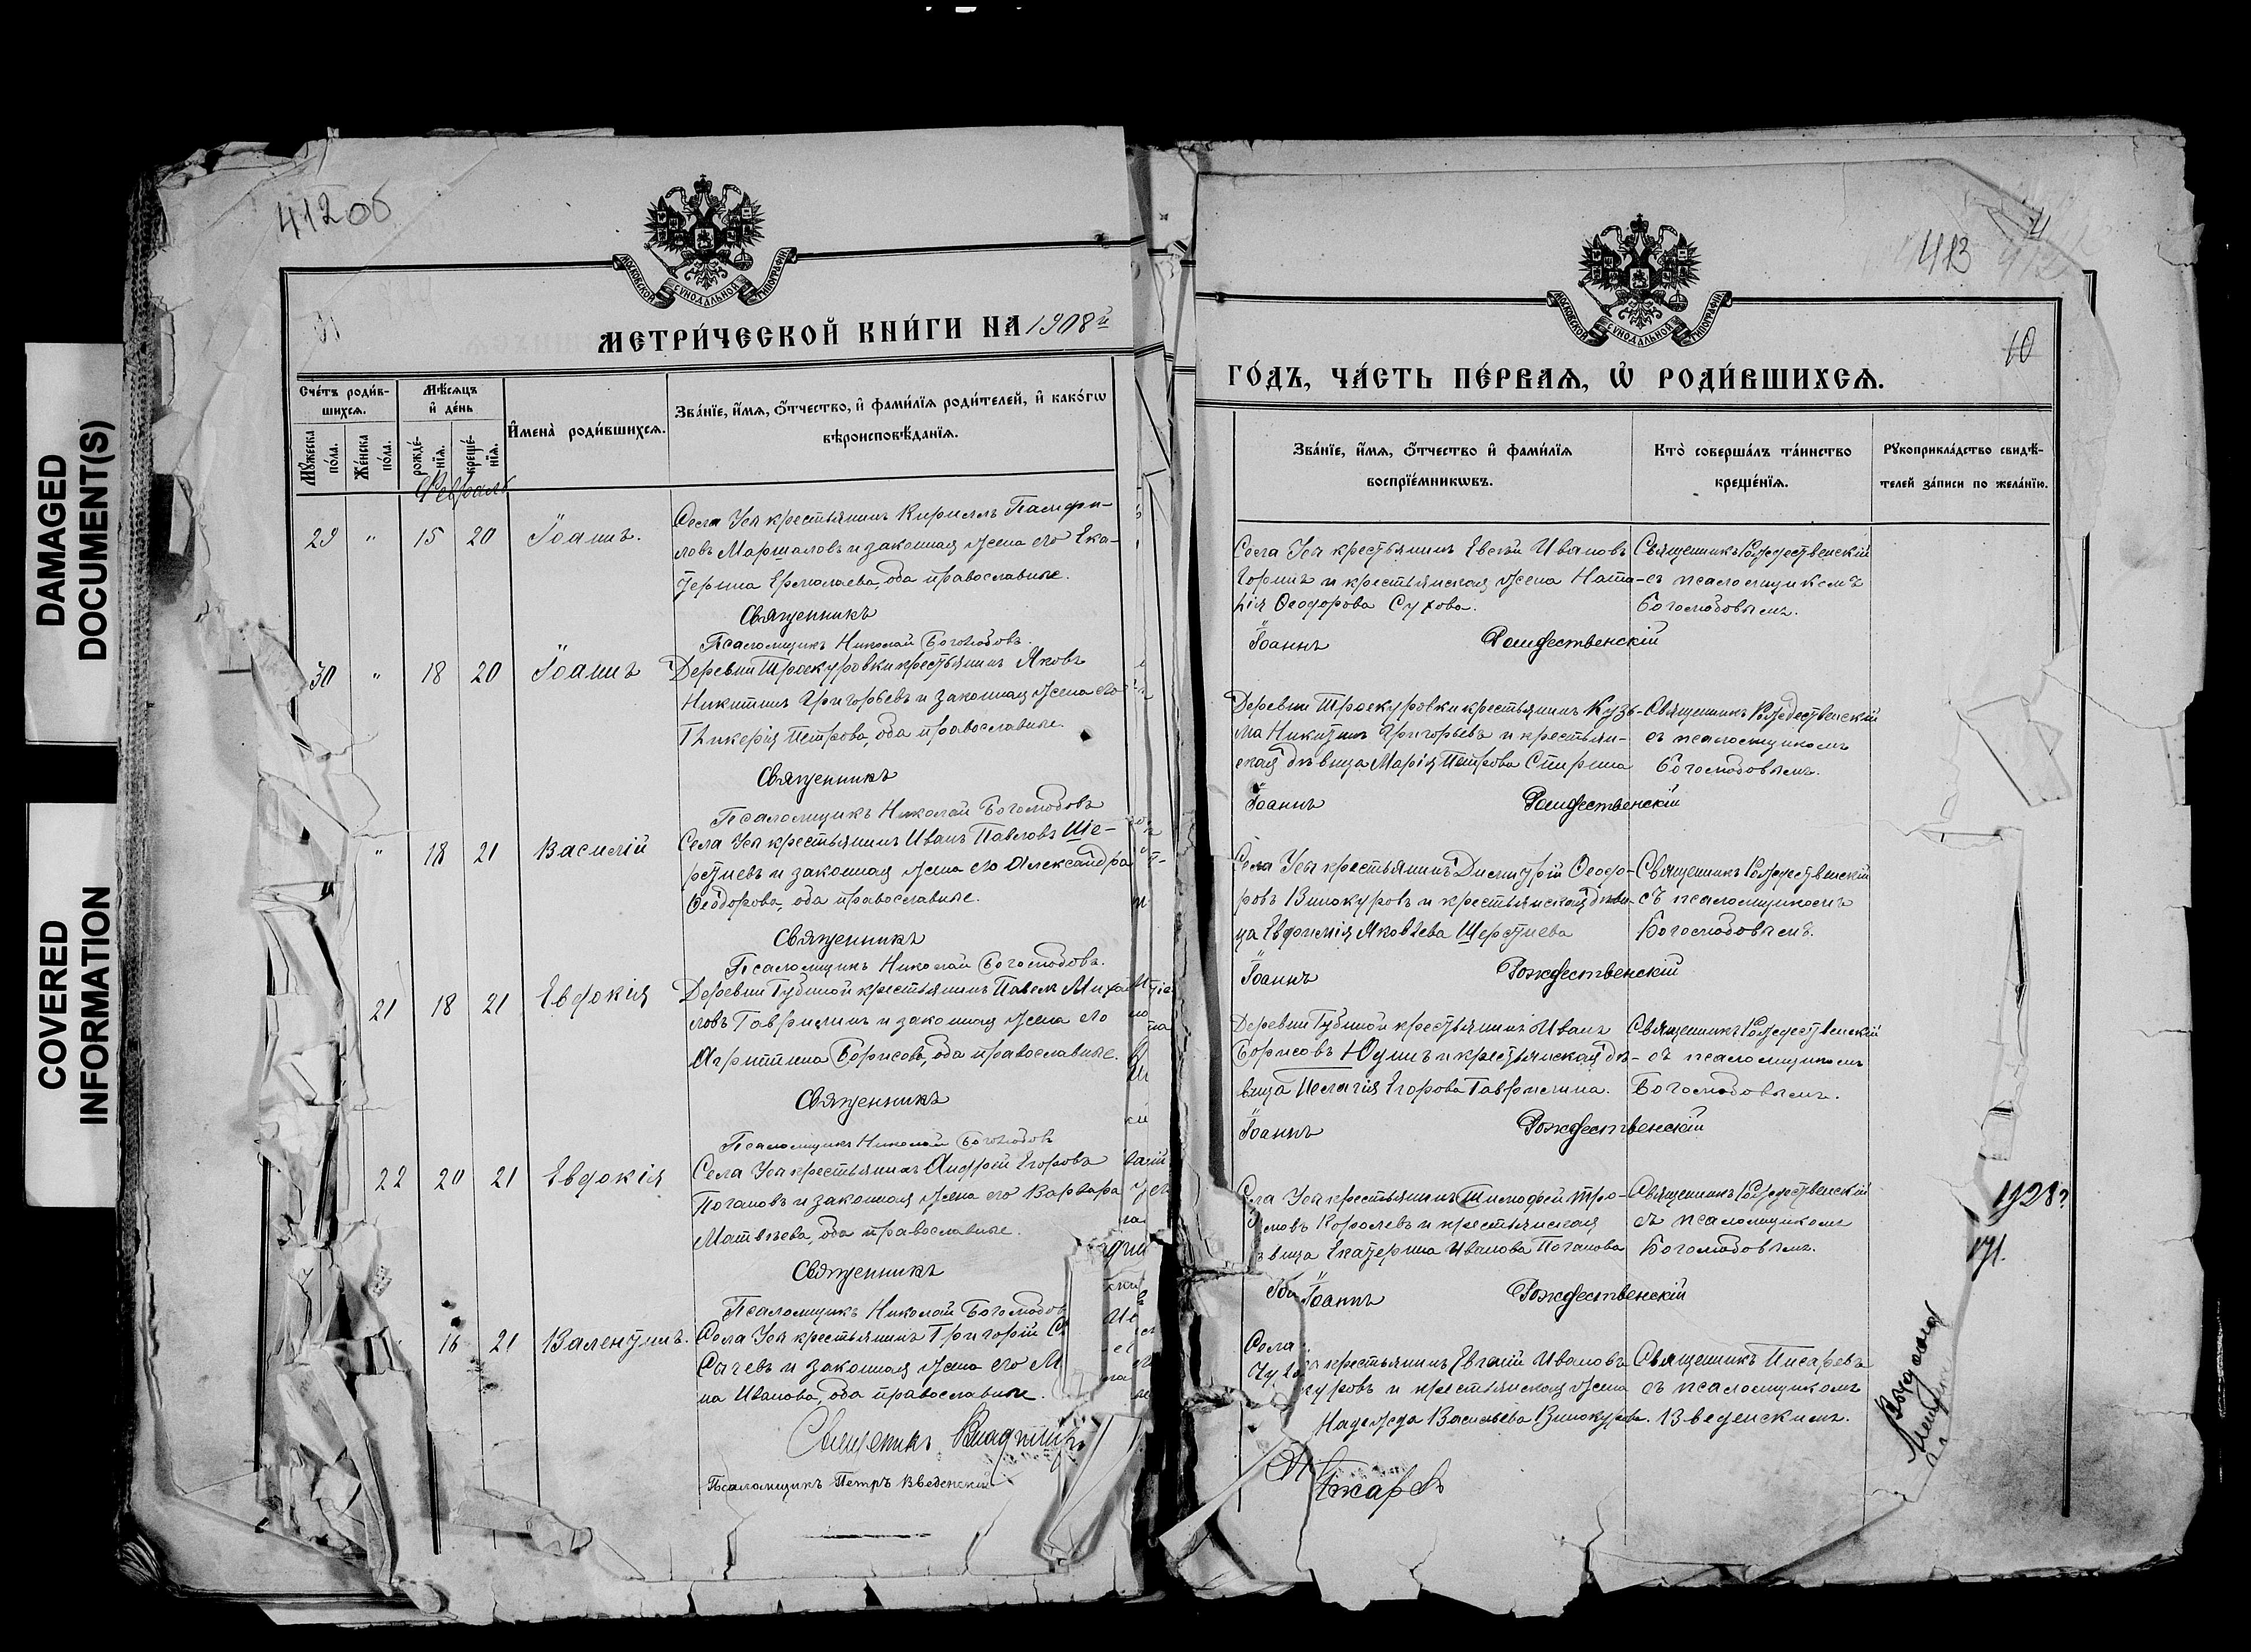 DAMAGED
DOCUMENT(S)
COVERED
INFORMATION
412 об
МОСКОВСКОЙ СѴНОДАЛЬНОЙ ТИПОГРАФІИ
МЕТРИ́ЧЕСКОЙ КНИ́ГИ НА 1908й
Сче́тъ роди́в-
шихсѧ.
Мѣ́сѧцъ
и де́нь
И҆мена̀ роди́вшихсѧ.
Зва́нїе, и҆́мѧ, ѻ҆́тчество, и҆ фами́лїѧ роди́телей, и҆ како́гѡ
вѣроисповѣ́данїѧ.
Мꙋ́жеска
по́ла.
Же́нска
по́ла.
рожде́-
нїѧ.
креще́-
нїѧ.
Февраль
29 " 15 20 Іоаннъ.
Села Усп крестьянинъ Кириллъ Памфи-
ловъ Маршаловъ и законная жена его Ека-
терина Ермолаева, оба православные.
Священникъ
Псаломщикъ Николай Боголюбовъ.
30 " 18 20 Іоаннъ
Деревни Троекуровки крестьянинъ Яковъ
Никитинъ Григорьевъ и законная жена его
Гликерія Петрова, оба православные.
Священникъ
Псаломщикъ Николай Боголюбовъ
" 18 21 Василій
Села Усп крестьянинъ Иванъ Павловъ Ше-
рстневъ и законная жена его Александра
Ѳеодорова, оба православные.
Священникъ
Псаломщикъ Николай Боголюбовъ.
21 18 21 Евдокія
Деревни Губиной крестьянинъ Павелъ Михай
ловъ Гаврилинъ и законная жена его
Агриппина Борисова, оба православные.
Священникъ
Псаломщикъ Николай Боголюбовъ
22 20 21 Евдокія
Села Усп крестьянинъ Андрей Егоровъ
Потаповъ и законная жена его Варвара
Матвѣева, оба православные.
Священникъ
Псаломщикъ Николай Боголюбов
16 21 Валентинъ.
Села Усп крестьянинъ Григорій
Сачевъ и законная жена его М
на Иванова, оба православные.
Священникъ Владиміръ
Псаломщикъ Петръ Введенскій
413
МОСКОВСКОЙ СѴНОДАЛЬНОЙ ТИПОГРАФІИ
10
ГО́ДЪ, ЧА́СТЬ ПЕ́РВАѦ, Ѡ҆ РОДИ́ВШИХСѦ.
Зва́нїе, и҆́мѧ, ѻ҆́тчество и҆ фами́лїѧ
воспрїе́мникѡвъ.
Кто̀ соверша́лъ та́инство
креще́нїѧ.
Рꙋкоприкла́дство свидѣ́-
телей за́писи по жела́нїю.
Села Усп крестьянинъ Евсѣй Ивановъ
Горинъ и крестьянская жена Ната-
лія Ѳеодорова Сухова.
Священникъ Рождественскій
съ псаломщикомъ
Боголюбовымъ.
Іоаннъ Рождественскій
Деревни Троекуровки крестьянинъ Кузь-
ма Никитинъ Григорьевъ и крестьян-
ская дѣвица Марія Петрова Спирина
Священникъ Рождественскій
съ псаломщикомъ
Боголюбовымъ.
Іоаннъ Рождественскій
Села Усп крестьянинъ Димитрій Ѳеодо-
ровъ Винокуровъ и крестьянская дѣви-
ца Евфимія Яковлева Шерстнева
Священникъ Рождественскій
съ псаломщикомъ
Боголюбовымъ.
Іоаннъ Рождественскій
Деревни Губиной крестьянинъ Иванъ
Борисовъ Юдинъ и крестьянская дѣ-
вица Пелагія Егорова Гаврилина.
Священникъ Рождественскій
съ псаломщикомъ
Боголюбовымъ.
Іоаннъ Рождественскій
Села Усп крестьянинъ Тимофей Тро-
имовъ Королевъ и крестьянская
вица Екатерина Иванова Потапова
Священникъ Рождественскій
съ псаломщикомъ
Боголюбовымъ.
Іоаннъ Рождественскій
Села
крестьянинъ Евгеній Ивановъ
куровъ и крестьянская жена
Надежда Васильева Винокурова.
Священникъ Писаревъ
съ псаломщикомъ
Введенскимъ.
1928г